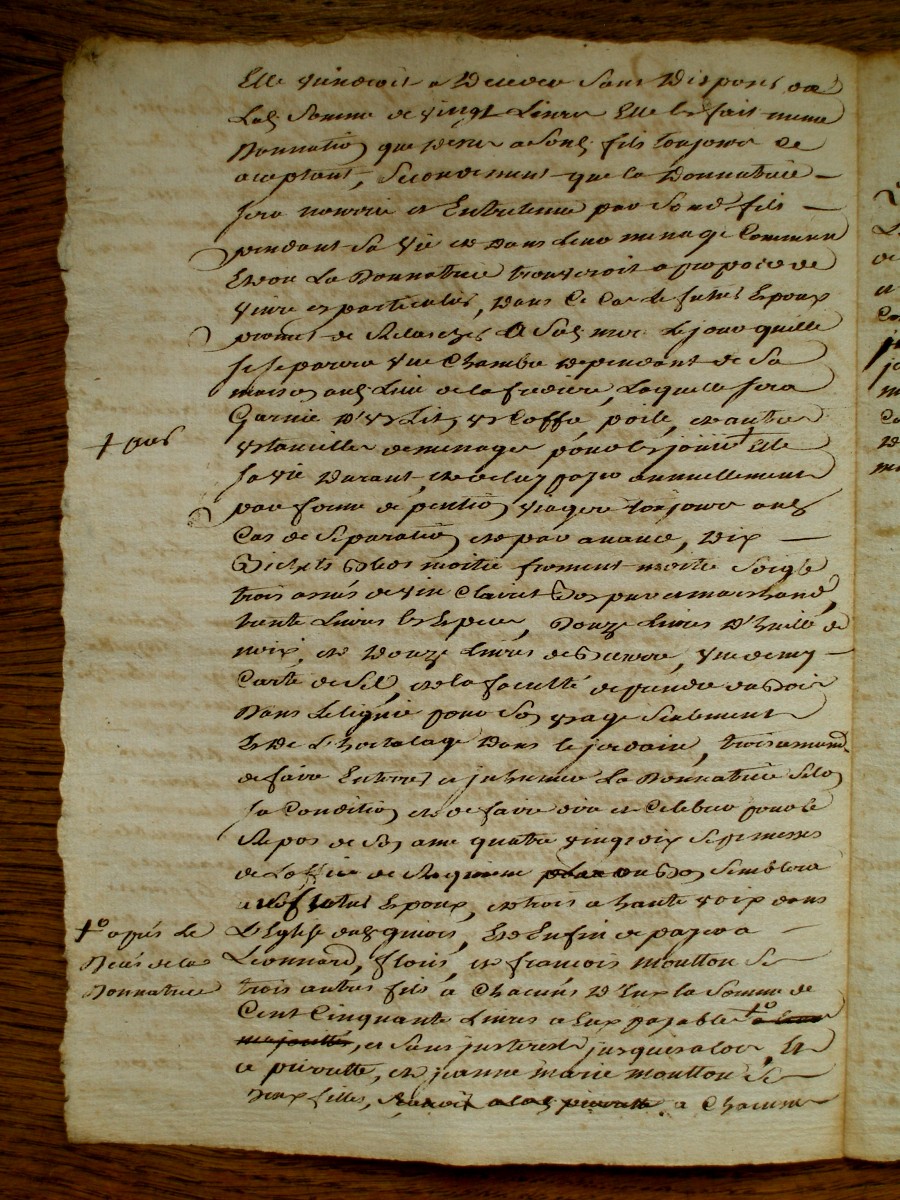 Elle viendroit a Deceder Sans Disposer de
Lad. Somme de vingt Livres Elle en fait meme
Donnation que dessus a Sond. fils toujours
acceptant, Secondement que la Donnatrice
Sera nourrie et Entretenue par Sond. fils
pendant Sa vie et Dans Leur menage Commun
Et ou La Donnatrice trouveroit a propos de
vivre en particulier, Dans Ce Cas le futur Epoux
promet de Relascher a Sad. mere le jour quelle
Se Separera une Chambre Dependant de Sa
maison aud. Lieu de la Laquelle Sera
Garnie D'un Lit, un Coffre, poile, et autres
Ustancilles de menage, pour en jouir Elle
+ par
Sa vie Durant, et de luy payer annuellement
par forme de pention viagere toujours aud.
Cas de Separation et par avance, Dix
Bichets Bled moitié froment moitié Soigle
trois asnées de vin Clairet Bon pur et marchand,
trente Livres en Espece, Douze Livres D'huille de
noix, et Douze Livres de Beurre, une demy
Carte de Sel, et la faculté de prendre du Bois
Dans Le lignié pour Son usage Seulement
Et De L'hortolage Dans le jardin,
de faire Enterrer et jnhumer La Donnatrice Selon
Sa Condition et de faire dire et Celebrer pour le
Repos de Son ame quatre vingt dix Sept messes
de Loffice de Requiem ou Bon Semblera
aud. futur Epoux, et trois a haute voix dans
L'Eglise dud. Et Enfin de payer a
+° apres le
Décés de la
Donnatrice
Léonnard, et francois moutton Se
trois autres fils a Chacuns D'Eux la Somme de
Cent Cinquante Livres a Eux payable +° a leur
majorité, et Sans jnterest jusques alors, Et
a pierrette, et jeanne marie moutton Se
Deux filles, a Chacune